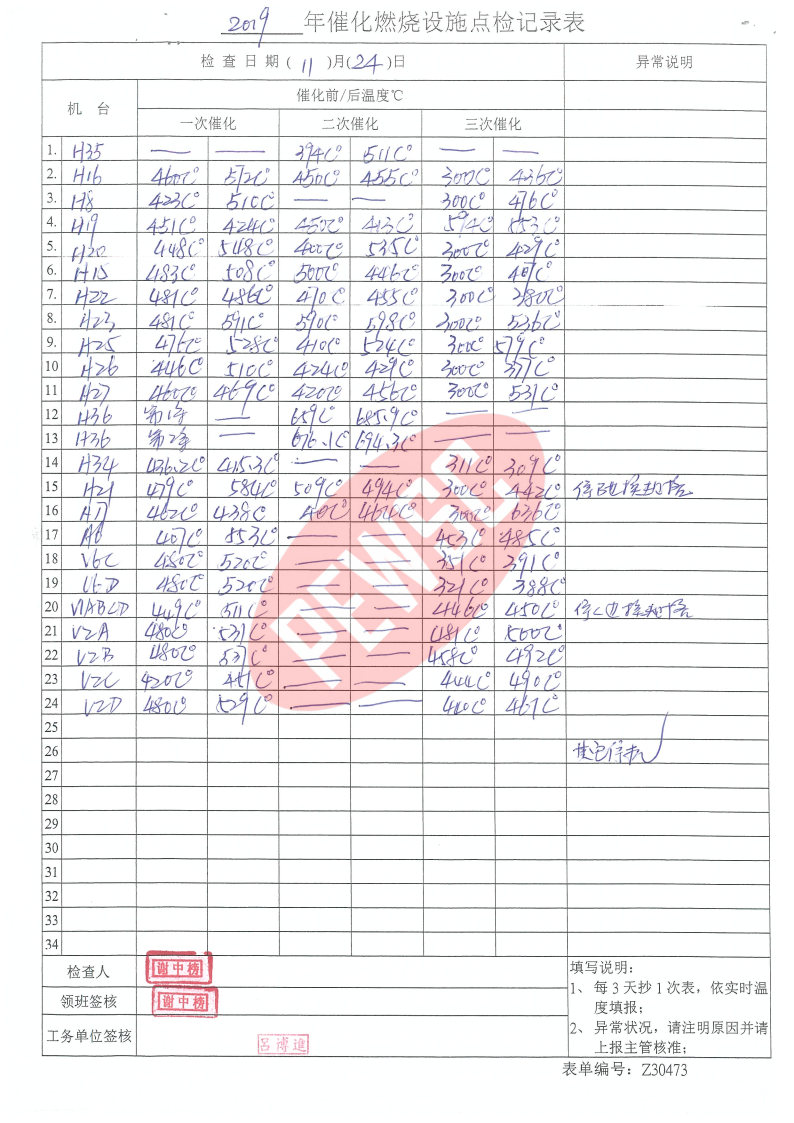 2019 年催化燃烧设施点检记录表
检查日期( 11 )月( 24 )日 异常说明
机 台 催化前/后温度℃
一次催化 二次催化 三次催化
1. H35 — — 394C° 511C° — —
2. H16 460C° 512C° 450C° 455C° 300C° 436C°
3. H8 423C° 510C° — — 300C° 476C°
4. H19 451C° 424C° 450C° 413C° 594C° 553C°
5. H20 448C° 548C° 400C° 535C° 300C° 429C°
6. H15 483C° 508C° 500C° 446C° 300C° 407C°
7. H22 481C° 486C° 470C° 455C° 300C° 380C°
8. H23 481C° 591C° 590C° 598C° 300C° 536C°
9. H25 476C° 528C° 410C° 524C° 300C° 579C°
10 H26 446C° 510C° 424C° 429C° 300C° 377C°
11 H27 460C° 469C° 420C° 456C° 300C° 531C°
12 H36 第1季 — 659C° 685.9C° — —
13 H36 第2季 — 676.1C° 694.3C° — —
14 H34 436.2C° 415.3C° — — 311C° 309C°
15 H21 479C° 584C° 509C° 494C° 300C° 442C°
16 A7 462C° 438C° 464C° 300C° 636C°
17 A6 407C° 553C° — — 453C° 485C°
18 V6C 480C° 520C° — — 351C° 391C°
19 V6D 480C° 520C° — — 321C° 388C°
20 V1ABCD 449C° 511C° — — 446C° 450C°
21 V2A 480C° 531C° — — 481C° 500C°
22 V2B 480C° 531C° — — 458C° 492C°
23 V2C 420C° 451C° — — 444C° 490C°
24 V2D 480C° 529C° — — 440C° 467C°
25
26 其它停机
27
28
29
30
31
32
33
34
PEWSC
检查人 谢中榜
领班签核 谢中榜
工务单位签核 吕博进
填写说明:
1、 每 3 天抄 1 次表，依实时温
度填报;
2、 异常状况，请注明原因并请
上报主管核准;
表单编号: Z30473